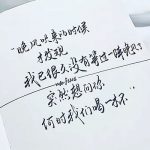 “晚风吹来的时候
才发现
我已很久没有等过一阵晚风”
突然想问你
何时我们喝一杯”